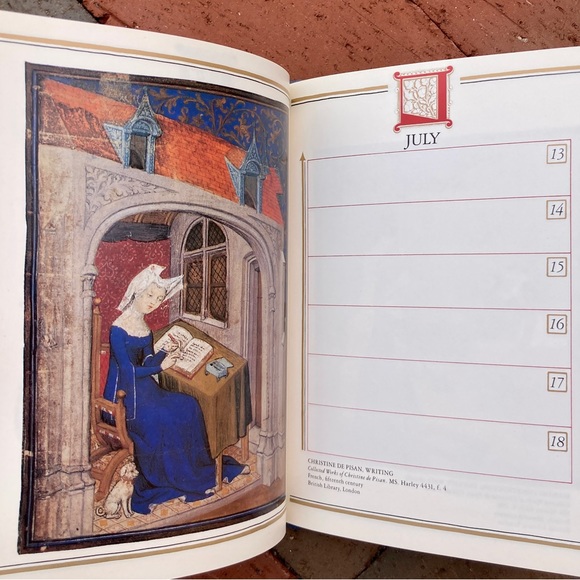 JULY
13
14
15
16
17
18
CHRISTINE DE PISAN, WRITING
Collected Works of Christine de Pisan. MS. Harley 4431, f. 4
French, fifteenth century
British Library, London